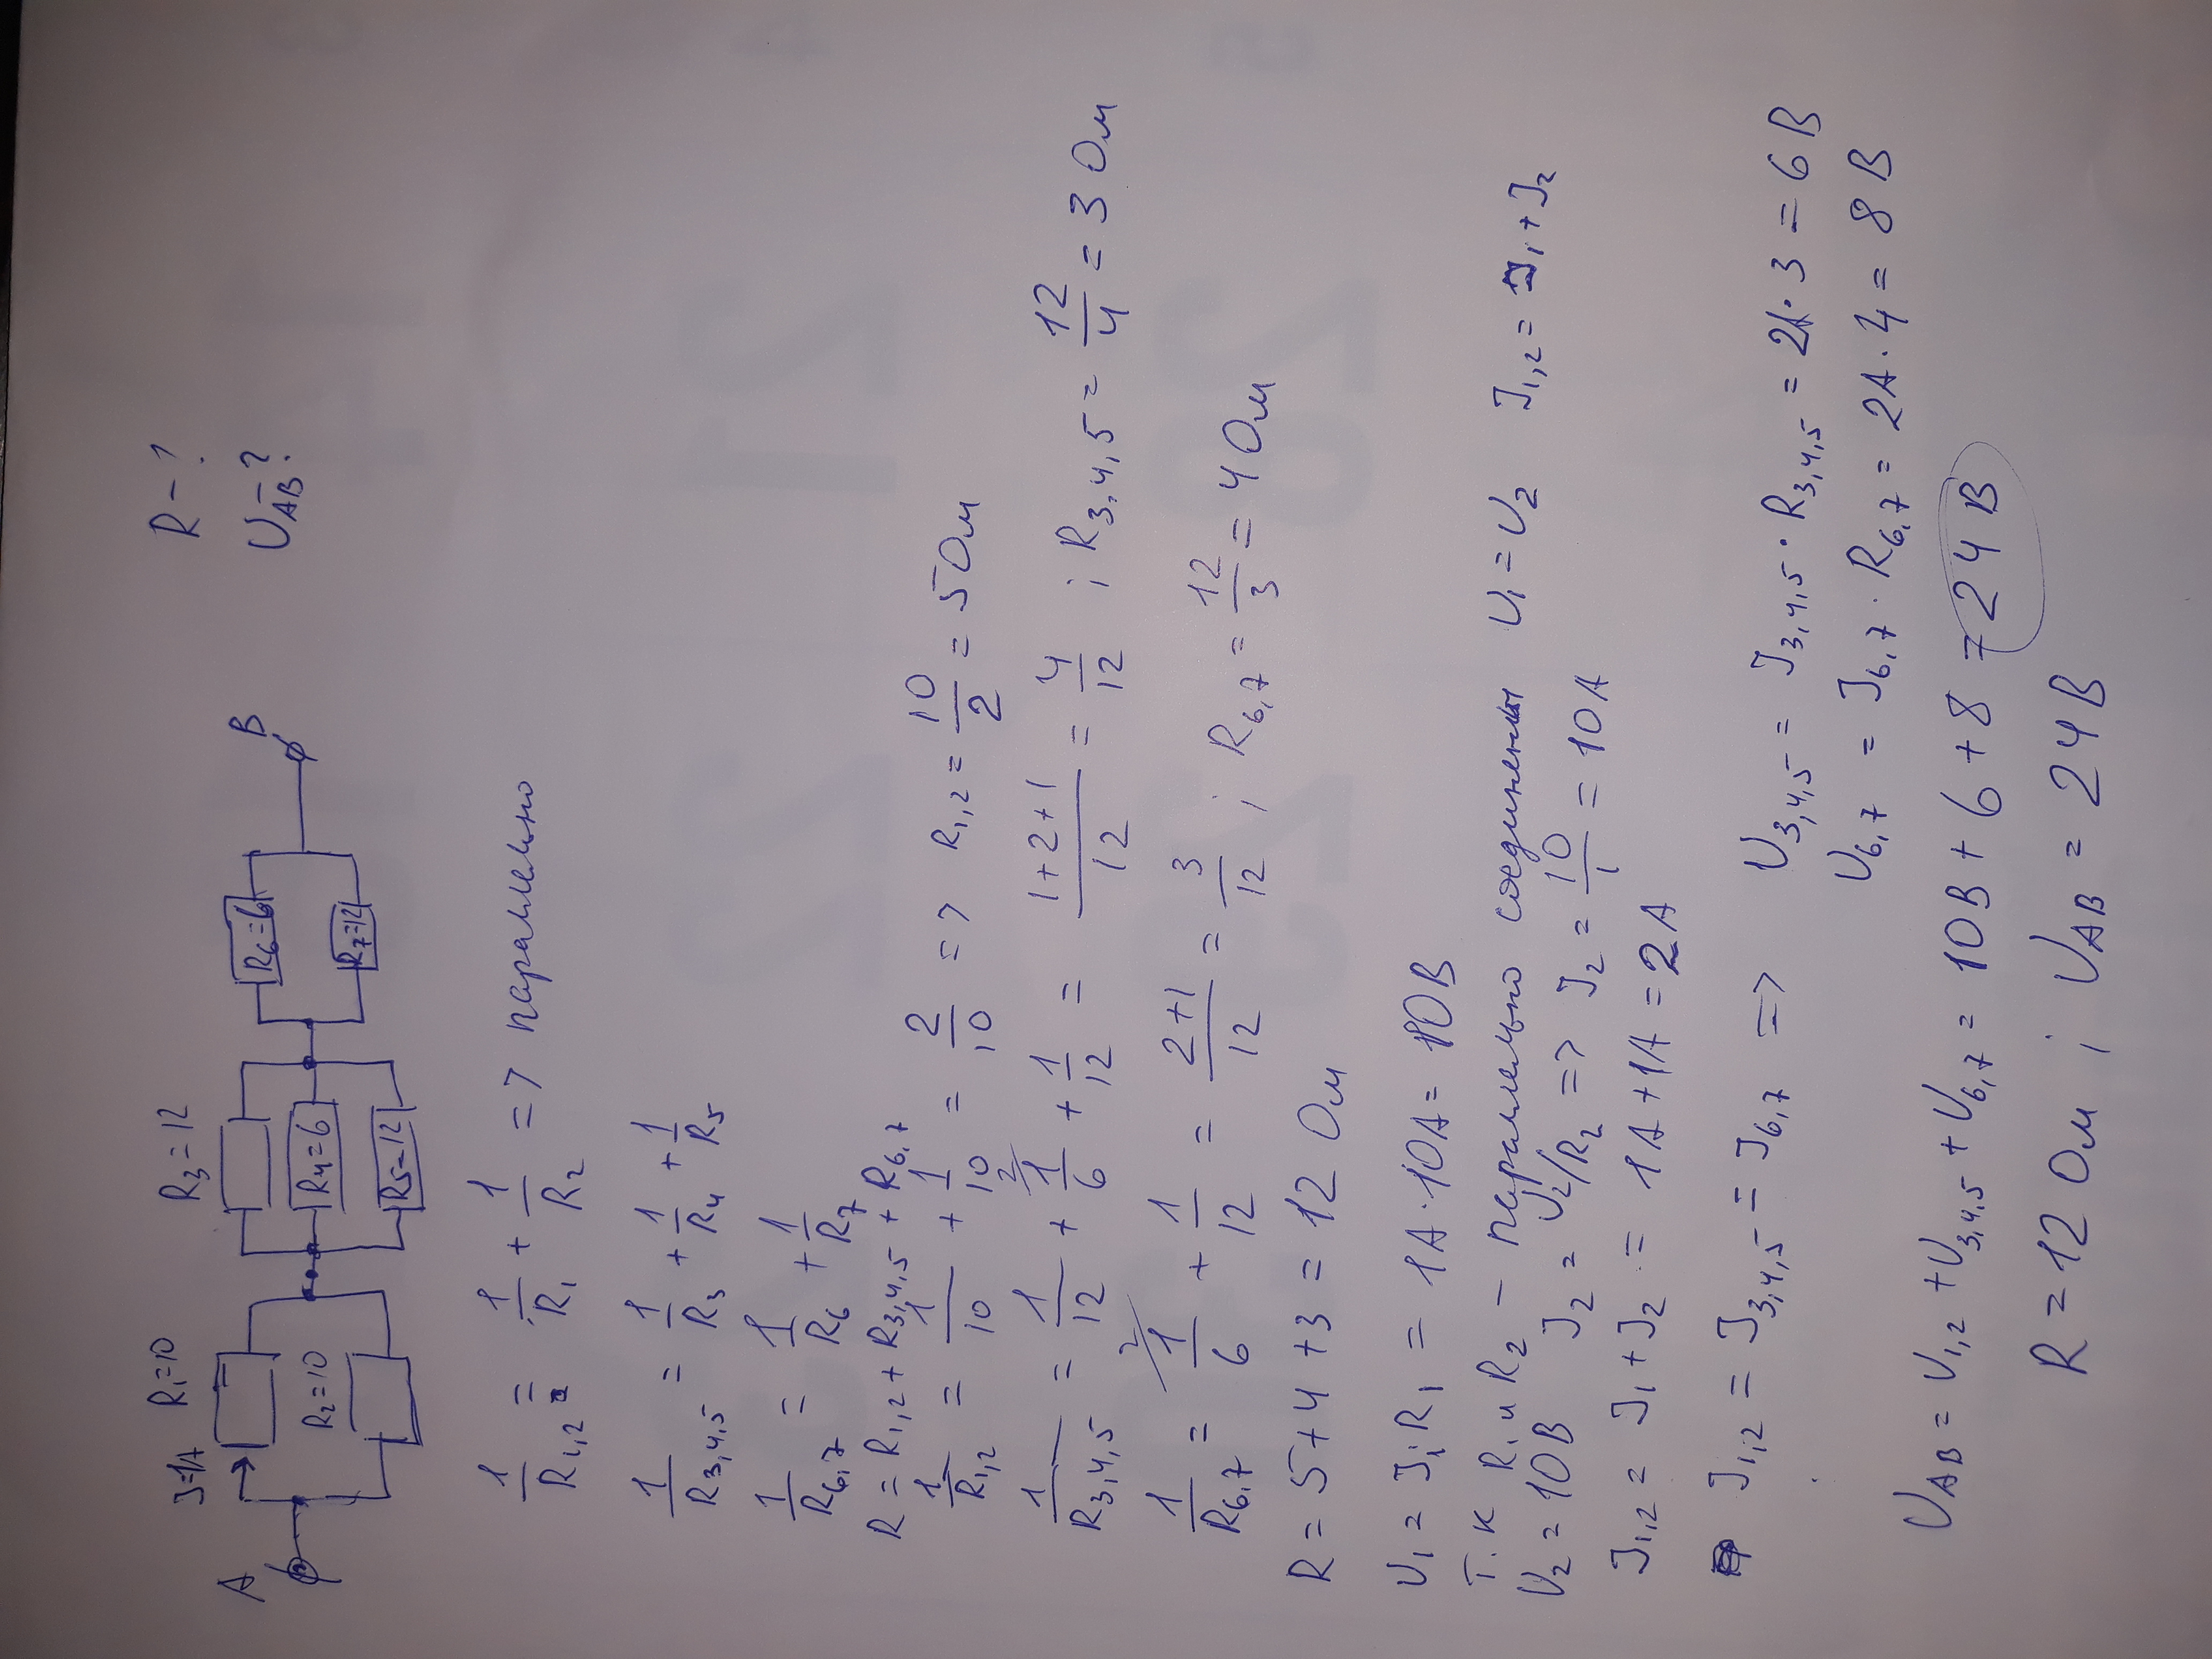 R-?
U_AB-?
A J=1A R₁=10 R₃=12 B
R₂=10 R₄=6 R₆=6
R₅=12 R₇=12
1/R₁,₂ = 1/R₁ + 1/R₂ => параллельно
1/R₃,₄,₅ = 1/R₃ + 1/R₄ + 1/R₅
1/R₆,₇ = 1/R₆ + 1/R₇
R = R₁,₂ + R₃,₄,₅ + R₆,₇
1/R₁,₂ = 1/10 + 1/10 = 2/10 => R₁,₂ = 10/2 = 5 Ом
1/R₃,₄,₅ = 1/12 + ²1/6 + 1/12 = (1+2+1)/12 = 4/12 ; R₃,₄,₅ = 12/4 = 3 Ом
1/R₆,₇ = ²1/6 + 1/12 = (2+1)/12 = 3/12 ; R₆,₇ = 12/3 = 4 Ом
R = 5+4+3 = 12 Ом
U₁ = J₁R₁ = 1A·10A = 10B
Т.к R₁ и R₂ – параллельно соединены U₁=U₂ J₁,₂ = J₁+J₂
U₂ = 10B J₂ = U₂/R₂ => J₂ = 10/1 = 10A
J₁,₂ = J₁+J₂ = 1A+1A = 2A
J₁,₂ = J₃,₄,₅ = J₆,₇ => U₃,₄,₅ = J₃,₄,₅ · R₃,₄,₅ = 2A·3 = 6B
U₆,₇ = J₆,₇ · R₆,₇ = 2A·4 = 8B
U_AB = U₁,₂ + U₃,₄,₅ + U₆,₇ = 10B+6+8 = 24B
R = 12 Ом ; U_AB = 24B